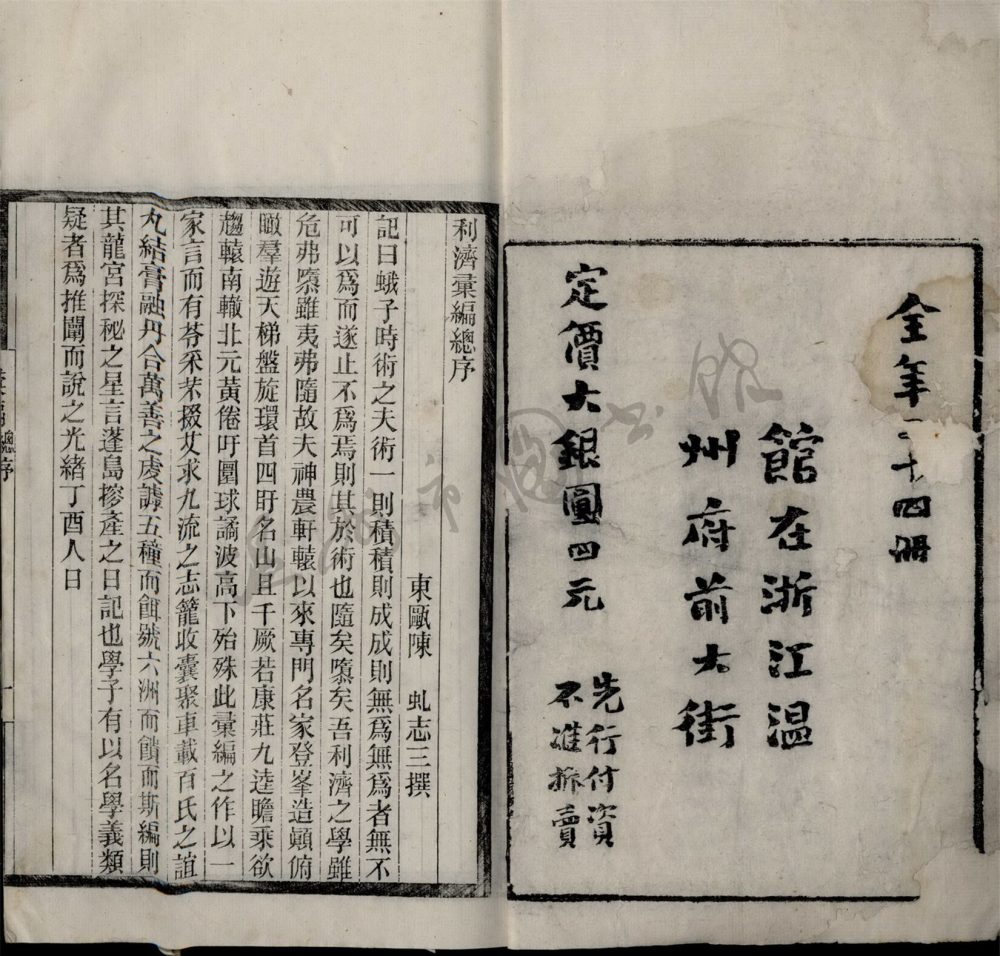 全年二十四冊
館在浙江温
州府前大街
定價大銀圓四元
先行付資
不準拆賣
利濟彙編總序
東甌陳 虬志三撰
記曰蛾子時術之夫術一則積積則成成則無爲無爲者無不
可以爲而遂止不爲焉則其於術也隨矣隳矣吾利濟之學雖
危弗隳雖夷弗隨故夫神農軒轅以來專門名家登峯造顚俯
瞰羣遊天梯盤旋環首四盱名山且千厥若康莊九逵瞻乘欲
趨轅南轍北元黃倦吁圜球譎波高下殆殊此彙編之作以一
家言而有苓采朮掇艾求九流之志籠收囊聚車載百氏之誼
丸結膏融丹合萬善之虔謔五種而餌號六洲而饋而斯編則
其龍宮探秘之星言蓬島摻產之日記也學子有以名學義類
疑者爲推闡而說之光緒丁酉人日
總序
一